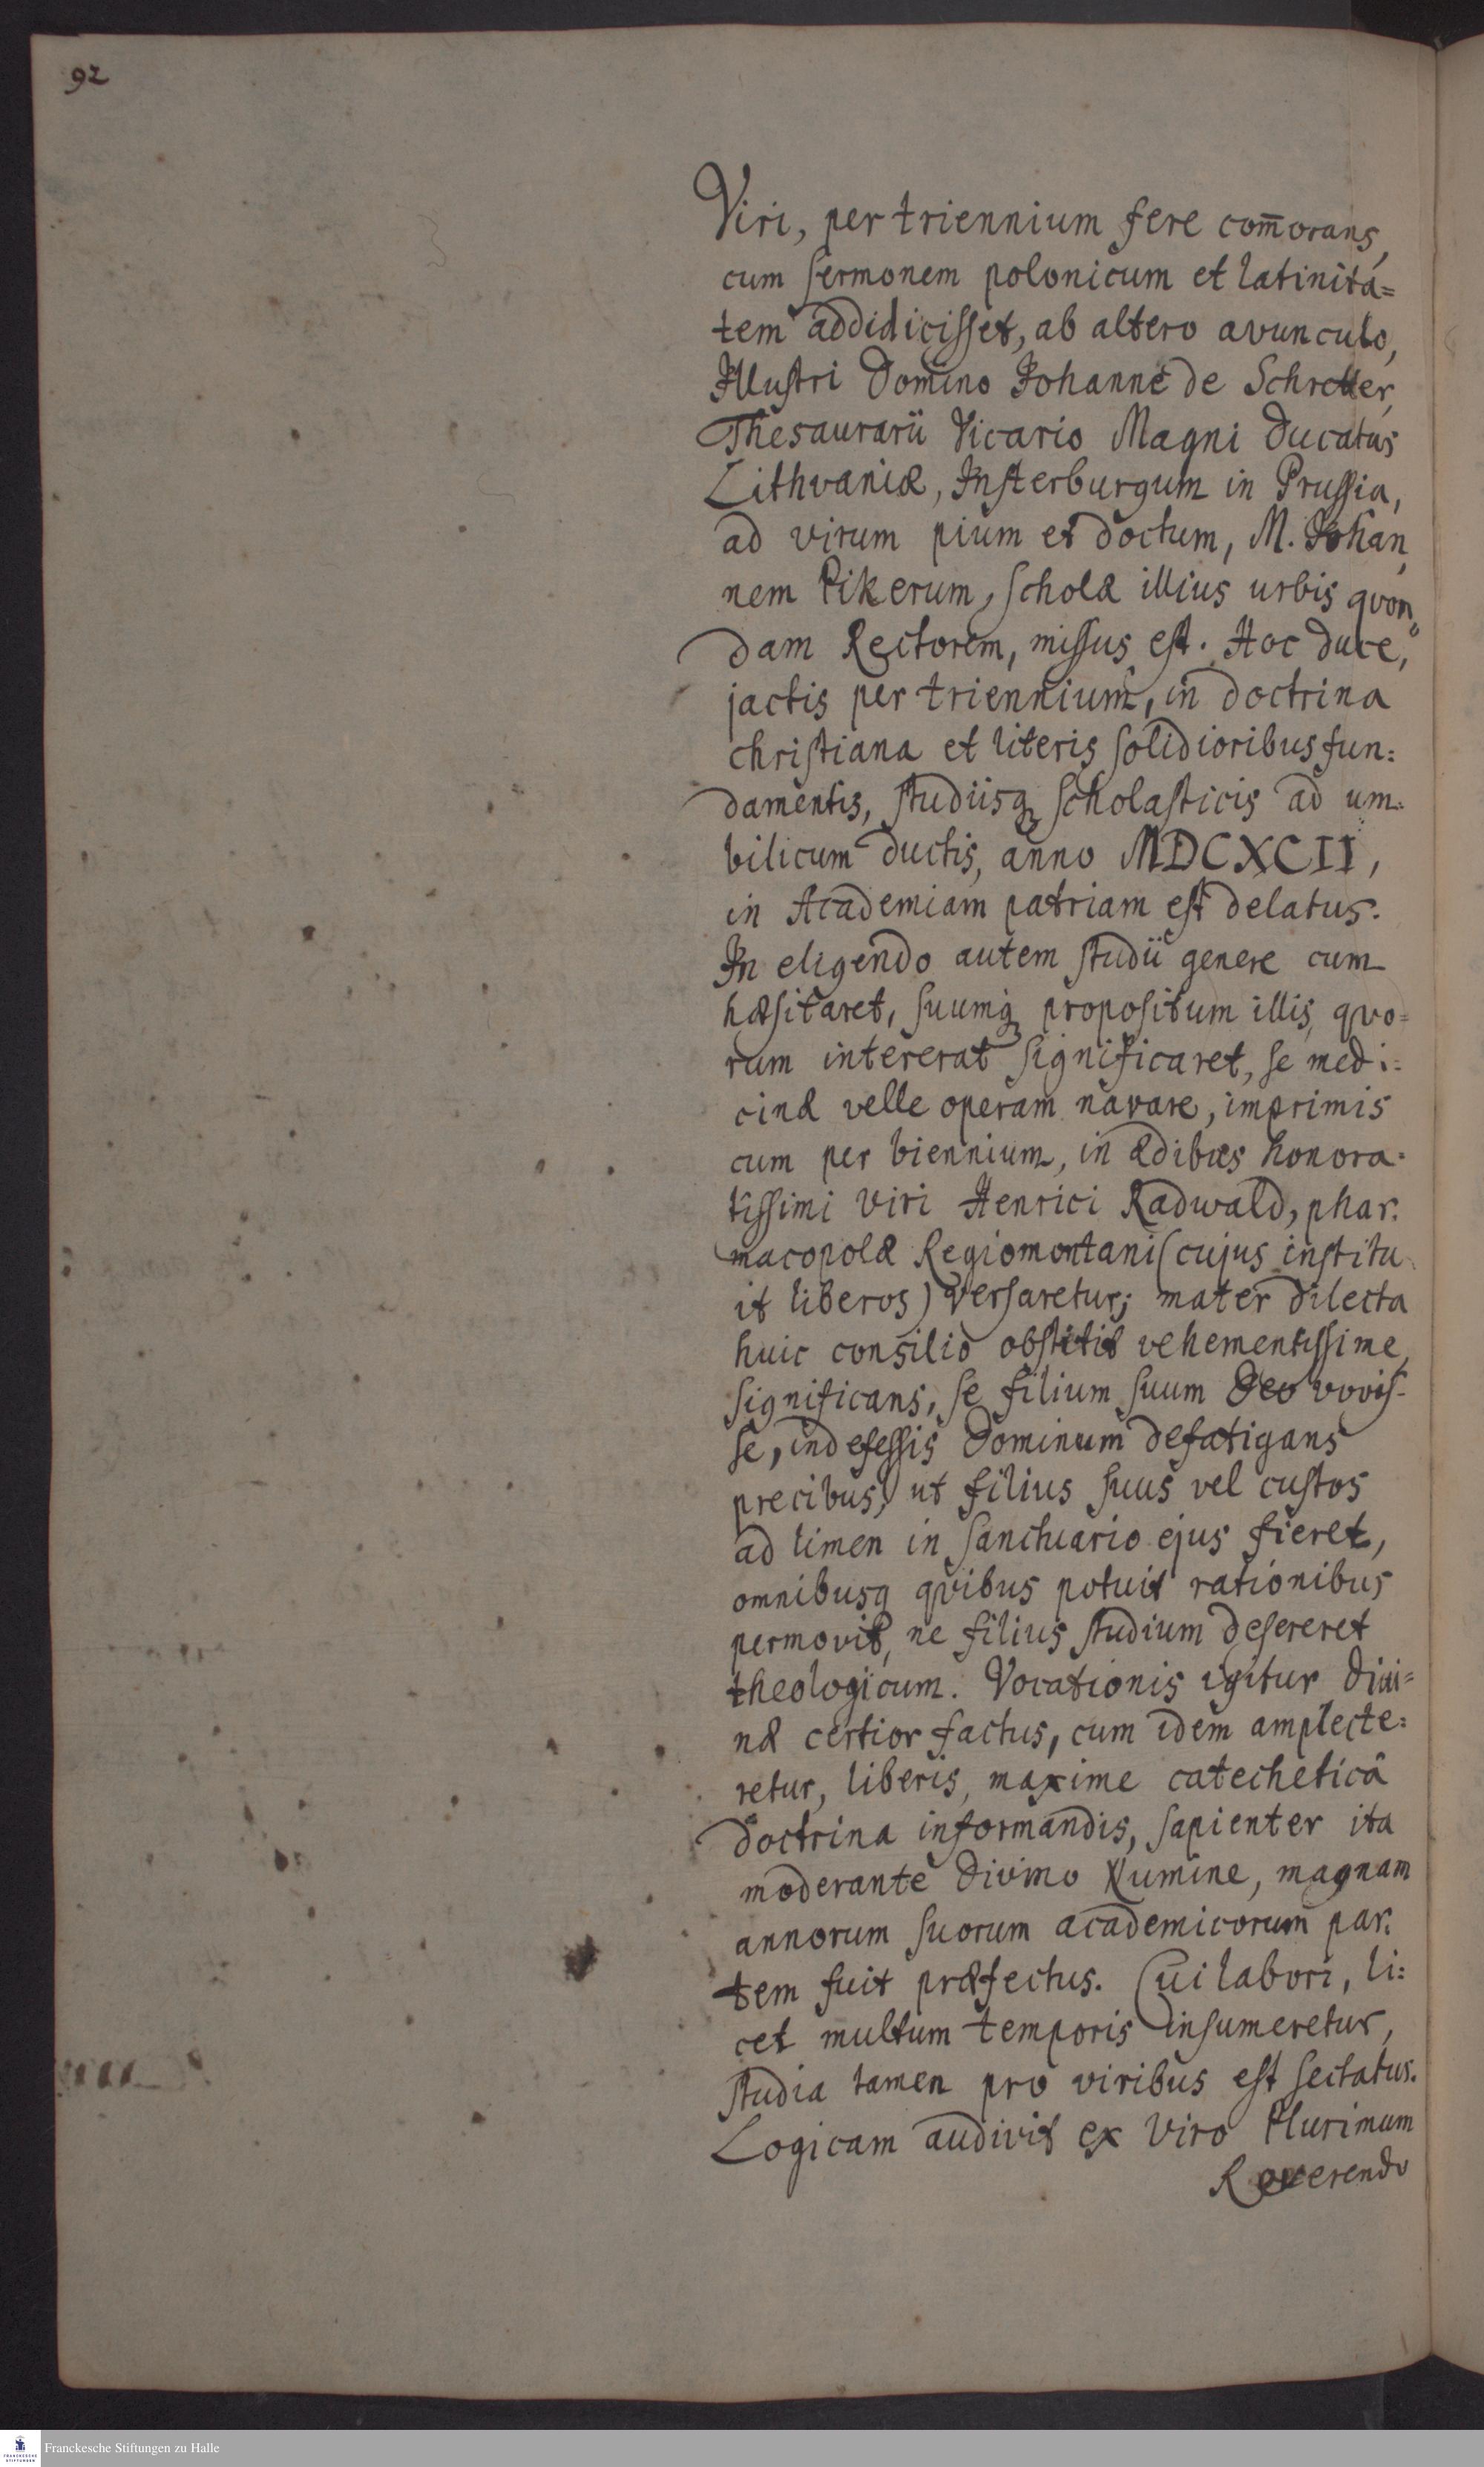 92
Viri, per triennium fere com̄orans,
cum sermonem polonicum et latinita=
tem addidicisset, ab altero avunculo,
Illustri Domino Johanne de Schretter,
Thesaurarii Vicario Magni Ducatus
Lithvaniæ, Insterburgum in Prussia,
ad virum pium et doctum, M. Johan,
nem Pikerum, scholæ illius urbis qvon„
dam Rectorem, missus est. Hoc duce,
jactis per triennium, in doctrina
christiana et literis solidioribus fun=
damentis, studiisq; scholasticis ad um=
bilicum ductis, anno MDCXCII,
in Academiam patriam est delatus.
In eligendo autem studii genere cum
hæsitaret, suumq; propositum illis, qvo=
rum intererat significaret, se medi=
cinæ velle operam navare, imprimis
cum per biennium, in ædibus honora=
tissimi viri Henrici Radwald, phar=
macopolæ Regiomontani (cujus institu
it liberos) versaretur; mater dilecta
huic consilio obstitit vehementissime,
significans, se filium suum Deo vovis-
se, indefessis Dominum defatigans
precibus, ut filius suus vel custos
ad limen in sanctuario ejus fieret,
omnibusq qvibus potuit rationibus
permovit, ne filius studium desereret
theologicum. Vocationis igitur divi=
næ certior factus, cum idem amplecte=
retur, liberis, maxime catecheticâ
doctrina informandis, sapienter ita
moderante divino Numine, magnam
annorum suorum academicorum par=
tem fuit præfectus. Cui labori, li=
cet multum temporis insumeretur,
studia tamen pro viribus est sectatus.
Logicam audivit ex Viro Plurimum
Reverendo
Franckesche Stiftungen zu Halle